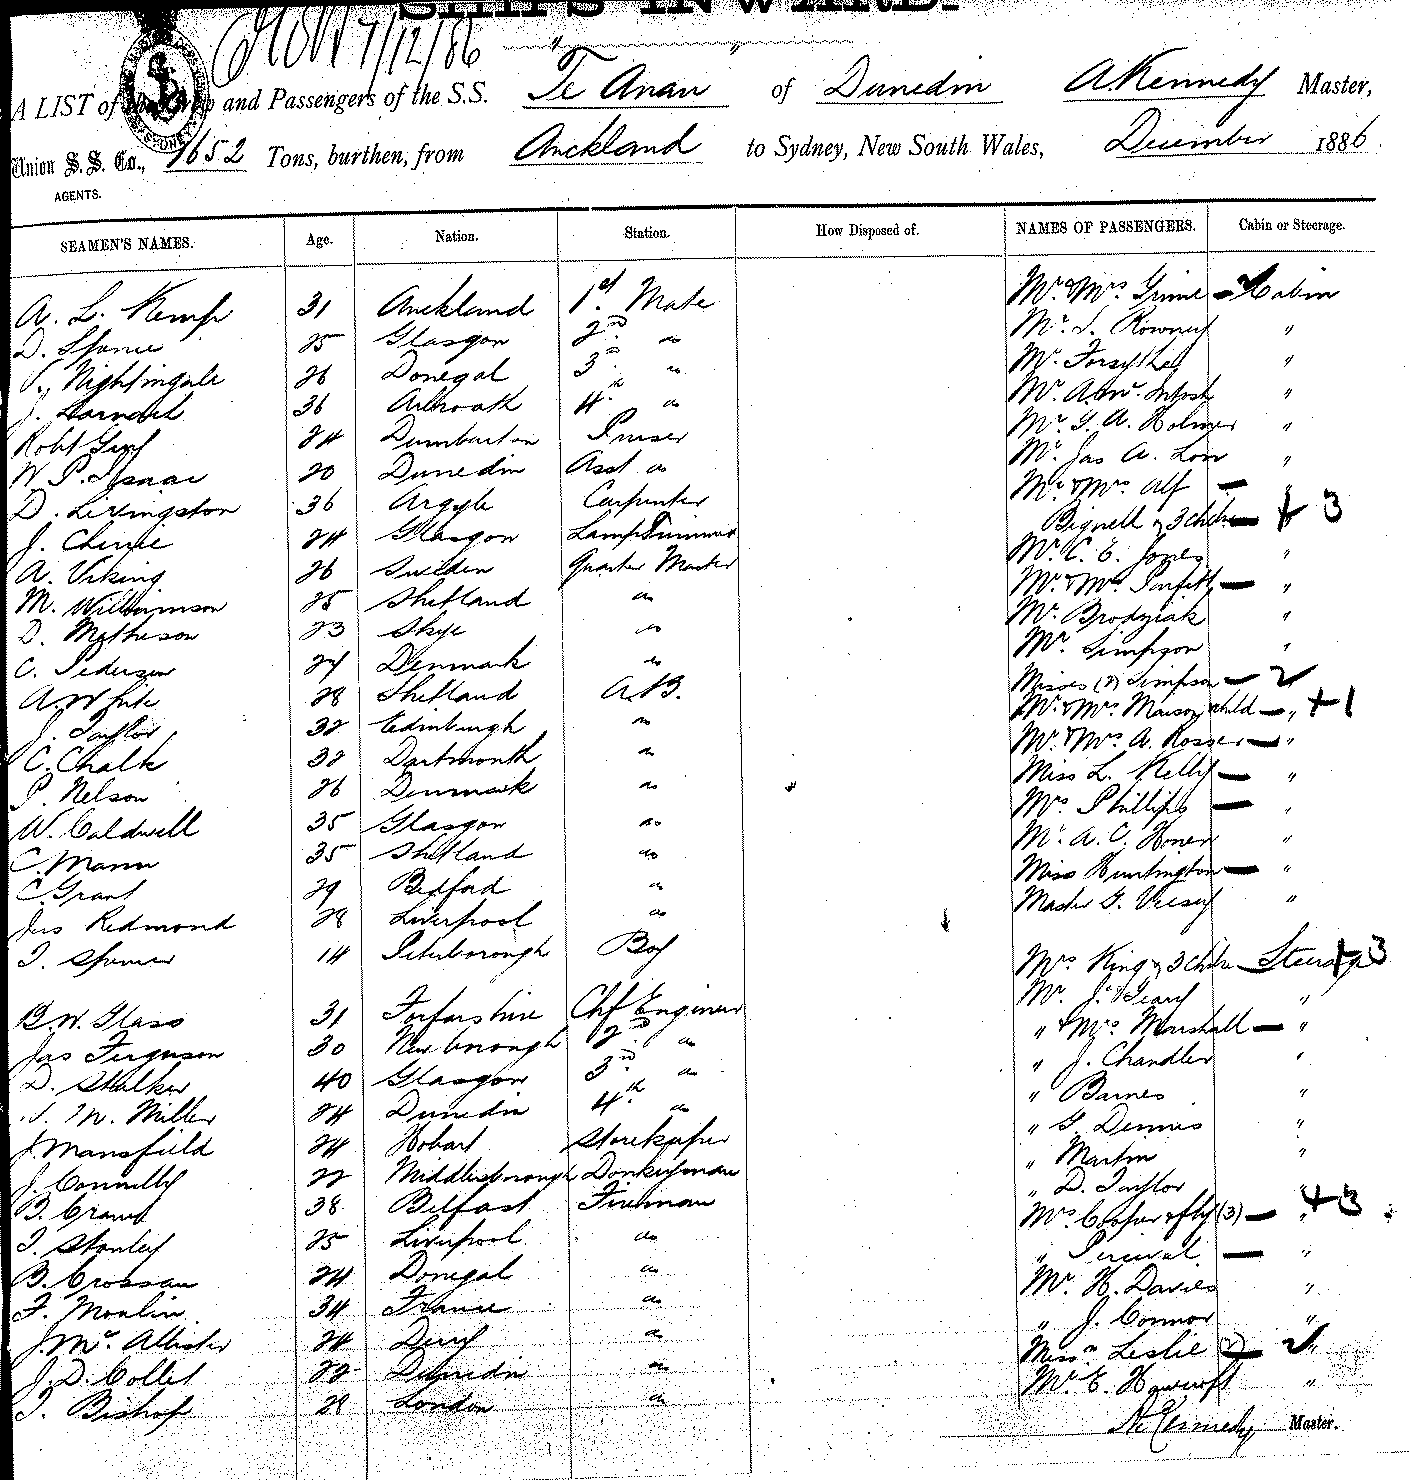 SHIPS INWARD.
7/12/86
A LIST of the Crew and Passengers of the S.S. Te Anau of Dunedin A. Kennedy Master,
Union S.S. Co., 1652 Tons, burthen, from Auckland to Sydney, New South Wales, December 1886.
AGENTS.
SEAMEN'S NAMES. Age. Nation. Station. How Disposed of. NAMES OF PASSENGERS. Cabin or Steerage.
A. L. Kemp 31 Auckland 1st Mate Mr & Mrs Grime — Cabin
D. Spence 25 Glasgow 2nd " Mr Rowney "
Nightingale 26 Donegal 3rd " Mr Forsythe "
J. 36 Arbroath 4th " Mr A. McIntosh "
Robt Gray 24 Dumbarton Purser Mr A. Holmes "
W. P. Isaac 20 Dunedin Asst " Mr Jas A. Low "
D. Livingston 36 Argyle Carpenter Mr & Mrs Alf —
J. 24 Glasgow Lamp Trimmer Bignell & 3 chdn — + 3
A. Viking 26 Sweden Quarter Master Mr C. E. Jones "
M. Williamson 25 Shetland " Mr & Mrs Parfitt — "
D. Matheson 23 Skye " Mr Brodziak "
C. Pedersen 24 Denmark " Mr Simpson "
A. White 28 Shetland A.B. Misses (2) Simpson — 2
J. Taylor 32 Edinburgh " Mr & Mrs child — " +1
C. Chalk 32 Dartmouth " Mr & Mrs A. Rosser — "
P. Nelson 26 Denmark " Miss L. Kelly — "
W. Caldwell 35 Glasgow " Mrs Phillips — "
C. Mann 35 Shetland " Mr A. C. "
C. Grant 29 Bedford " Miss Huntington — "
Jas Redmond 28 Liverpool " Master Veesey "
Spencer 14 Peterborough Boy Mrs King & 3 chdn — Steerage +3
B. W. Glass 31 Forfarshire Chf Engineer Mr J. Geary "
Jas Ferguson 30 Newborough 2nd " " & Mrs Marshall — "
D. Stalker 40 Glasgow 3rd " " J. Chandler "
M. Miller 24 Dunedin 4th " " Barnes "
J. Mansfield 24 Hobart Storekeeper " Dennis "
J. Connelly 22 Middlesborough Donkeyman " Martin "
B. 38 Belfast Fireman " D. Taylor "
Stanley 25 Liverpool " Mrs Cooper & fly (3) — " +3
B. Crossan 24 Donegal " " Percival — "
F. Moulin 34 France " Mr H. Davies "
J. McAllister 24 Derry " " J. Connor "
J. D. Collet 22 Dunedin " Misses Leslie (2) — 2 "
Bishop 29 London " Mr E. Howcroft "
A. Kennedy Master.